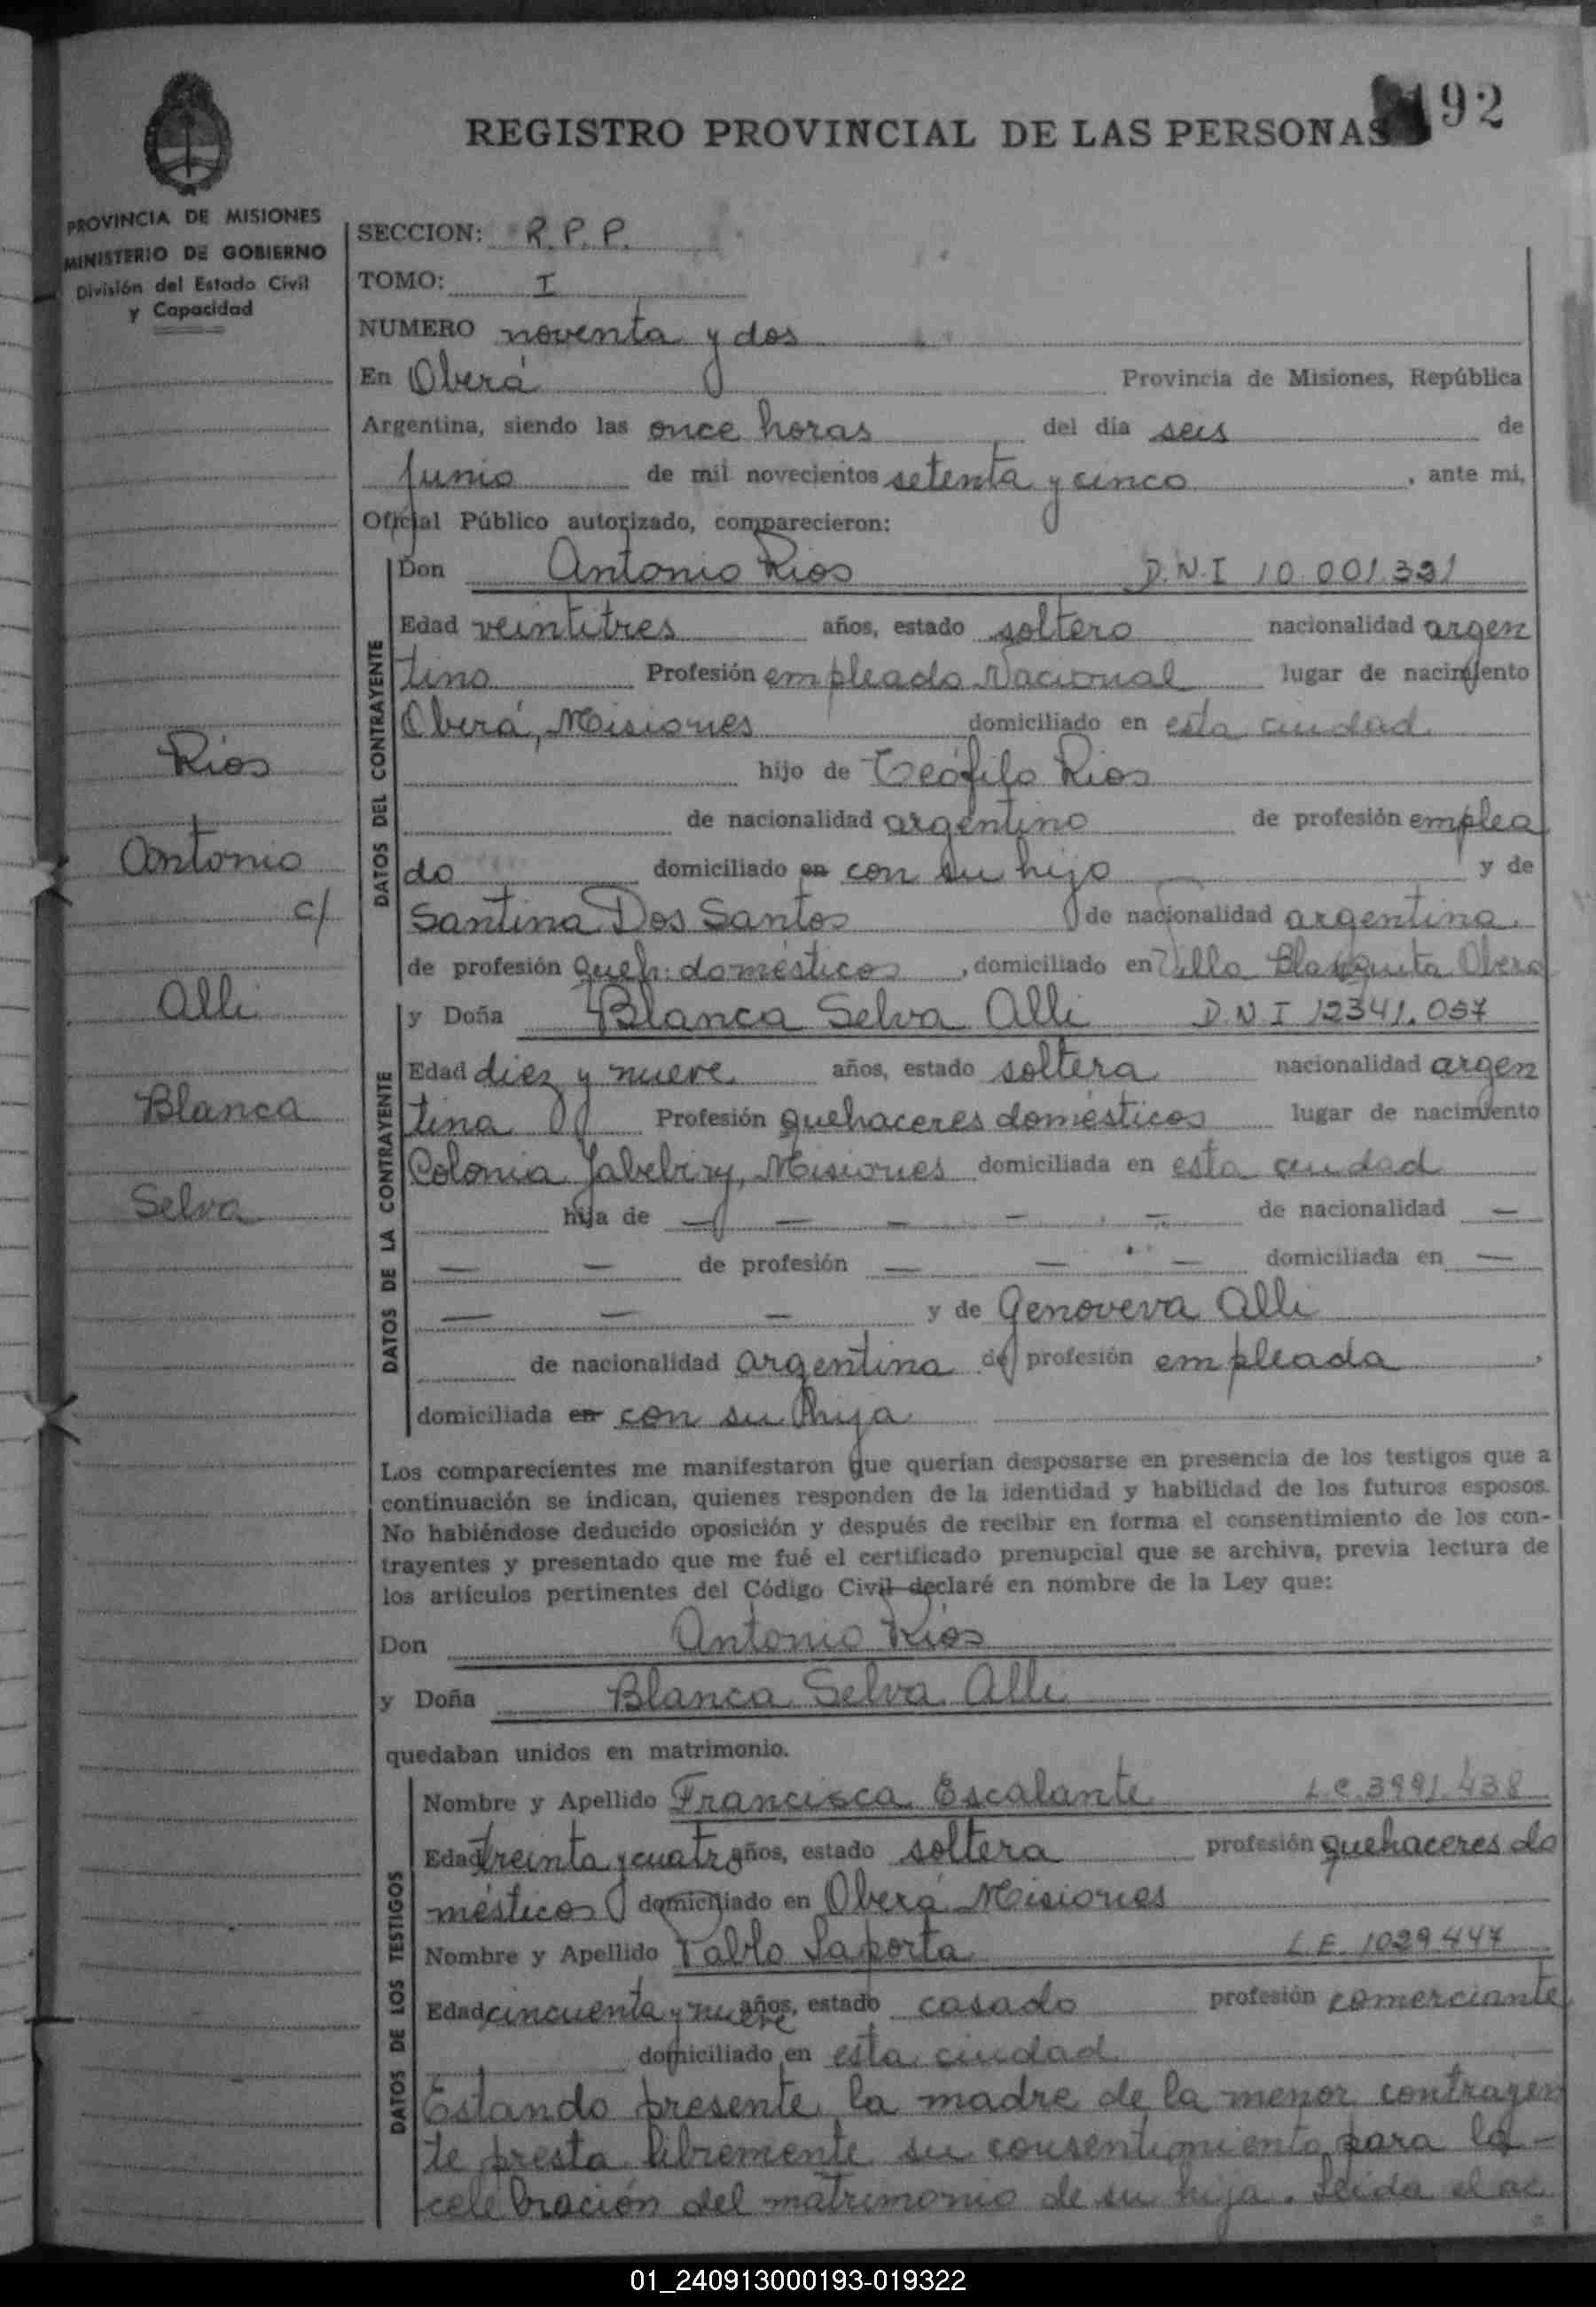 192
REGISTRO PROVINCIAL DE LAS PERSONAS
PROVINCIA DE MISIONES
MINISTERIO DE GOBIERNO
División del Estado Civil
y Capacidad
SECCION: R. P. P.
TOMO: I
NUMERO noventa y dos
En Oberá Provincia de Misiones, República
Argentina, siendo las once horas del día seis de
Junio de mil novecientos setenta y cinco, ante mi,
Oficial Público autorizado, comparecieron:
DATOS DEL CONTRAYENTE
Don Antonio Rios D.N.I 10.001.331
Edad veintitres años, estado soltero nacionalidad argen
tino Profesión empleado Nacional lugar de nacimiento
Oberá, Misiones domiciliado en esta ciudad
hijo de Teófilo Rios
de nacionalidad argentino de profesión emplea
do domiciliado en con su hijo y de
Santina Dos Santos de nacionalidad argentina
de profesión Queh: domésticos, domiciliado en Villa Blanquita Oberá
Rios
Antonio
c/
Alli
Blanca
Selva
DATOS DE LA CONTRAYENTE
y Doña Blanca Selva Alli D.N.I 12341.057
Edad diez y nueve años, estado soltera nacionalidad argen
tina Profesión quehaceres domésticos lugar de nacimiento
Colonia Jabebiry, Misiones domiciliada en esta ciudad
hija de — — — — — de nacionalidad —
— — de profesión — — — domiciliada en —
— — — y de Genoveva Alli
de nacionalidad argentina de profesión empleada,
domiciliada en con su hija
Los comparecientes me manifestaron que querían desposarse en presencia de los testigos que a
continuación se indican, quienes responden de la identidad y habilidad de los futuros esposos.
No habiéndose deducido oposición y después de recibir en forma el consentimiento de los con-
trayentes y presentado que me fué el certificado prenupcial que se archiva, previa lectura de
los artículos pertinentes del Código Civil declaré en nombre de la Ley que:
Don Antonio Rios
y Doña Blanca Selva Alli
quedaban unidos en matrimonio.
DATOS DE LOS TESTIGOS
Nombre y Apellido Francisca Escalante L.C. 3991.438
Edad treinta y cuatro años, estado soltera profesión quehaceres do
mésticos domiciliado en Oberá Misiones
Nombre y Apellido Pablo Laporta L.E. 1029447
Edad cincuenta y nueve años, estado casado profesión comerciante
domiciliado en esta ciudad
Estando presente la madre de la menor contrayen
te presta libremente su consentimiento para la -
celebración del matrimonio de su hija. Leida el ac
01_240913000193-019322